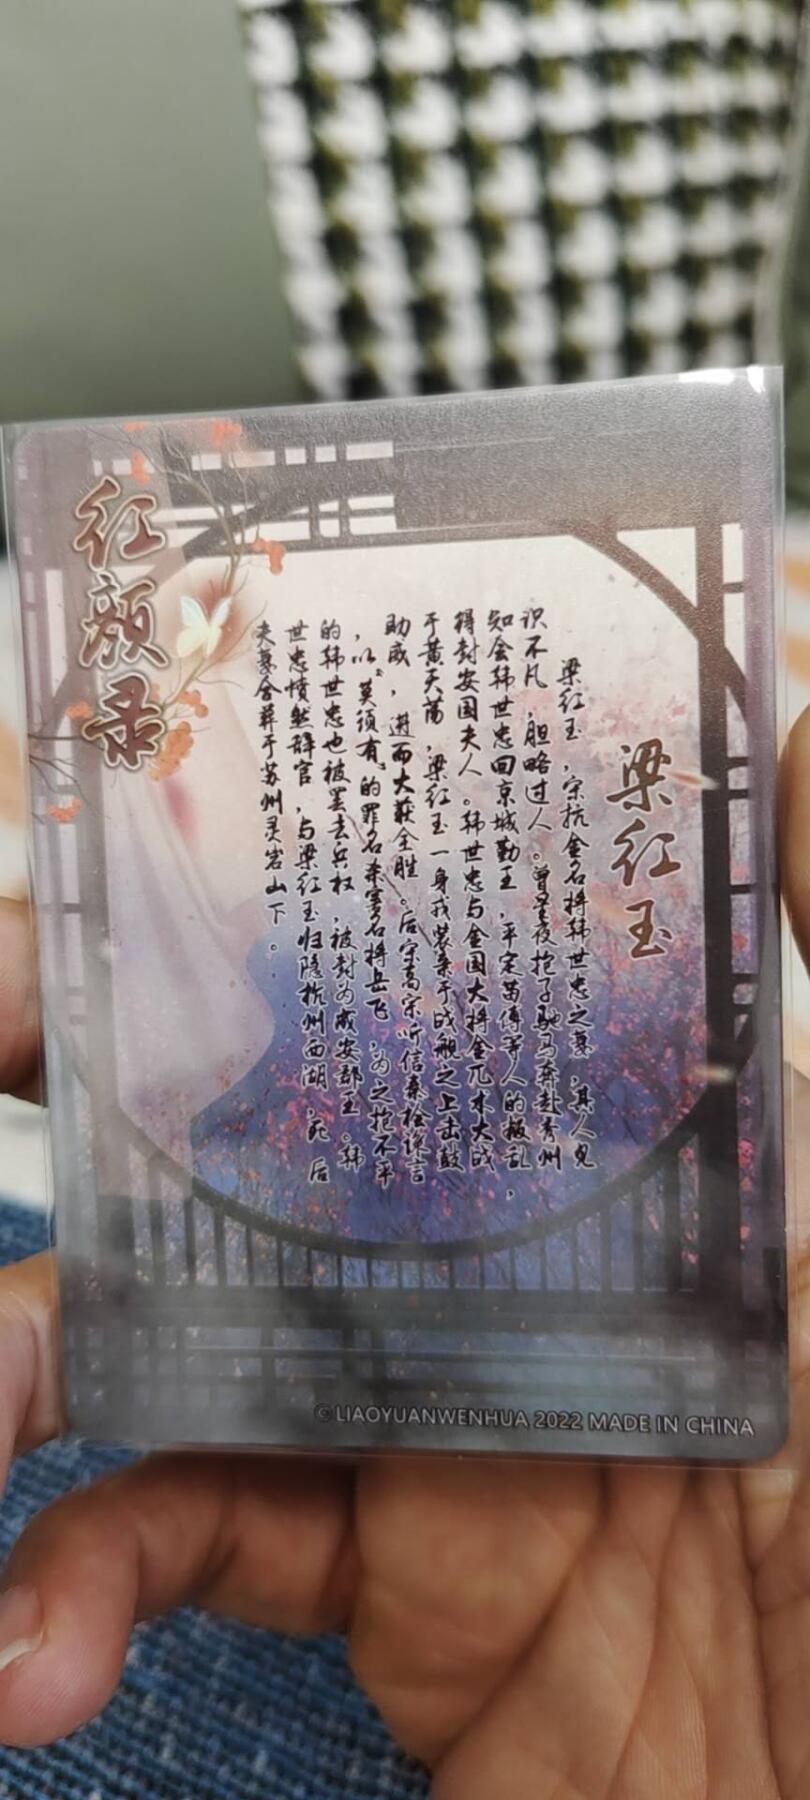 红颜录
梁红玉
梁红玉，宋抗金名将韩世忠之妻，其人见
识不凡，胆略过人。曾星夜抱子驰马奔赴秀州
知会韩世忠回京城勤王，平定苗傅等人的叛乱，
得封安国夫人。韩世忠与金国大将金兀术大战
于黄天荡，梁红玉一身戎装亲于战舰之上击鼓
助威，进而大获全胜。后宋高宗听信秦桧谗言
，以“莫须有”的罪名杀害名将岳飞，为之抱不平
的韩世忠也被罢去兵权，被封为咸安郡王。韩
世忠愤然辞官，与梁红玉归隐杭州西湖，死后
夫妻合葬于苏州灵岩山下。
©LIAOYUANWENHUA 2022 MADE IN CHINA